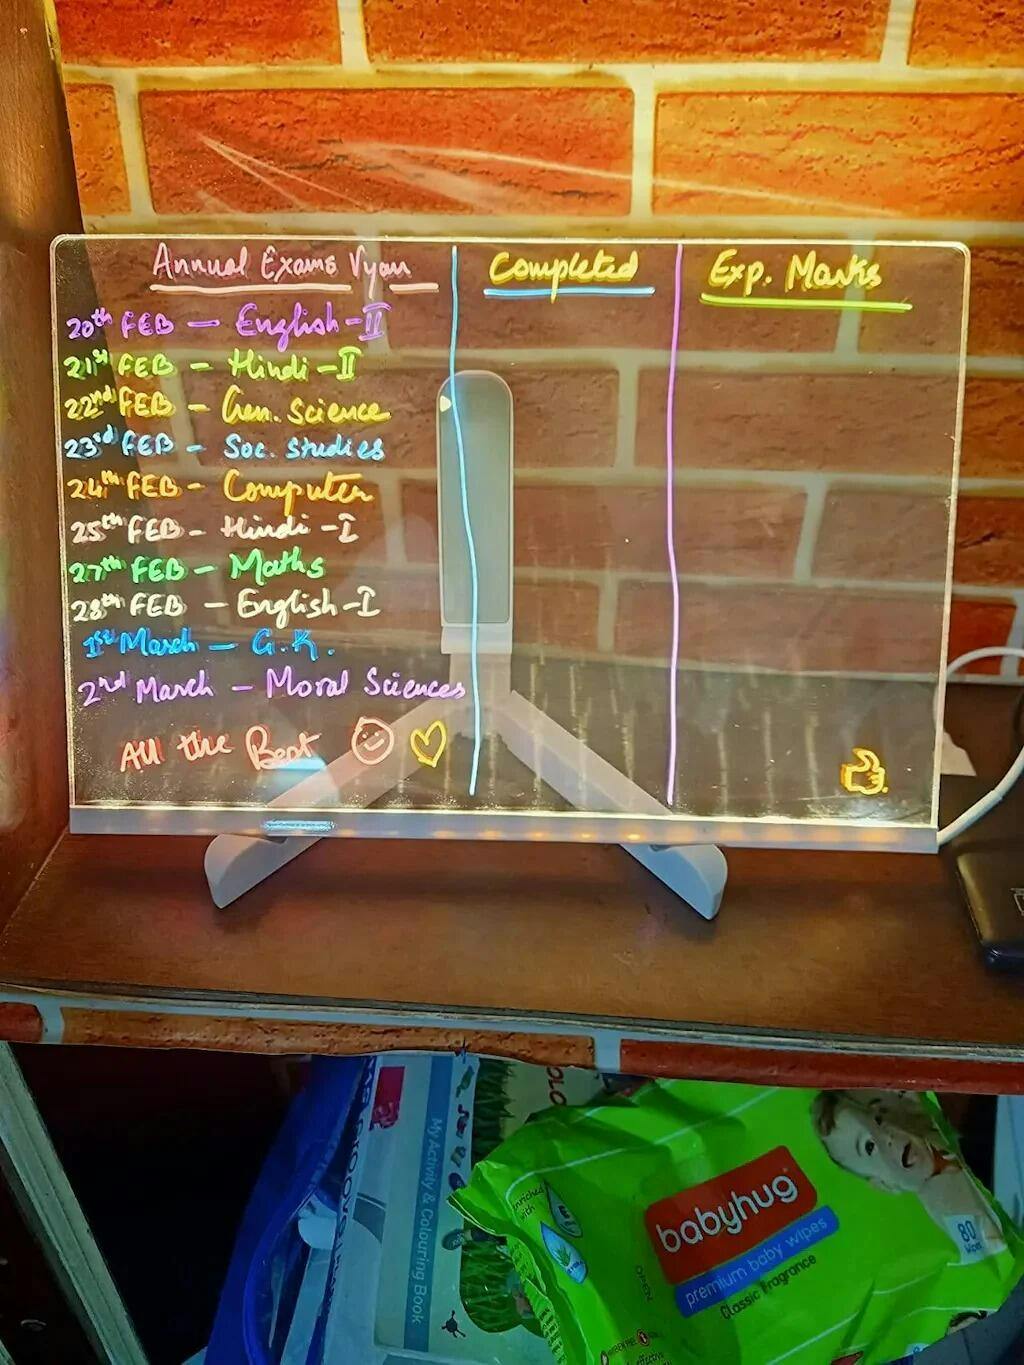 Annual Exams Vyan
Completed
Exp. Marks
20th FEB – English-II
21st FEB – Hindi-II
22nd FEB – Gen. Science
23rd FEB – Soc. Studies
24th FEB – Computer
25th FEB – Hindi-I
27th FEB – Maths
28th FEB – English-I
1st March – G.K.
2nd March – Moral Sciences
All the Best
My Activity & Colouring Book
enriched with
babyhug
premium baby wipes
Classic Fragrance
80
Wipes